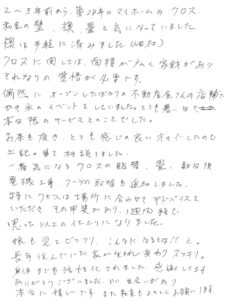 2〜3年前から、築28年のマイホームのクロス
和室の壁、襖、畳と気になっていました
襖は手軽に済みました
クロスに関しては、面積が大きく家財があり
それなりの覚悟が必要です。
偶然にオープンしたばかりの不動産屋さんの店舗に
かき氷のイベントをしていました。とても暑い日で
本日限のサービスとのことでした。
お茶も頂き、とても感じの良い方々でしたので
上記の事を相談しました。
一番気になるクロスの貼替、畳、
電機工事、クーラの取付も追加しました。
特にクロスは場所に合せてアドバイスを
いただき、その甲斐あり、1週間程で
思った以上の仕上りになりました
娘も見てビックリ、こんなになるとな!!と。
長年住んでいた家が生まれ変わりスッキリ。
身体までも活性化されました 感謝してます
ありがとうございました。いい出会いがあり
本当に嬉しいです。また和室もよろしくお願いします